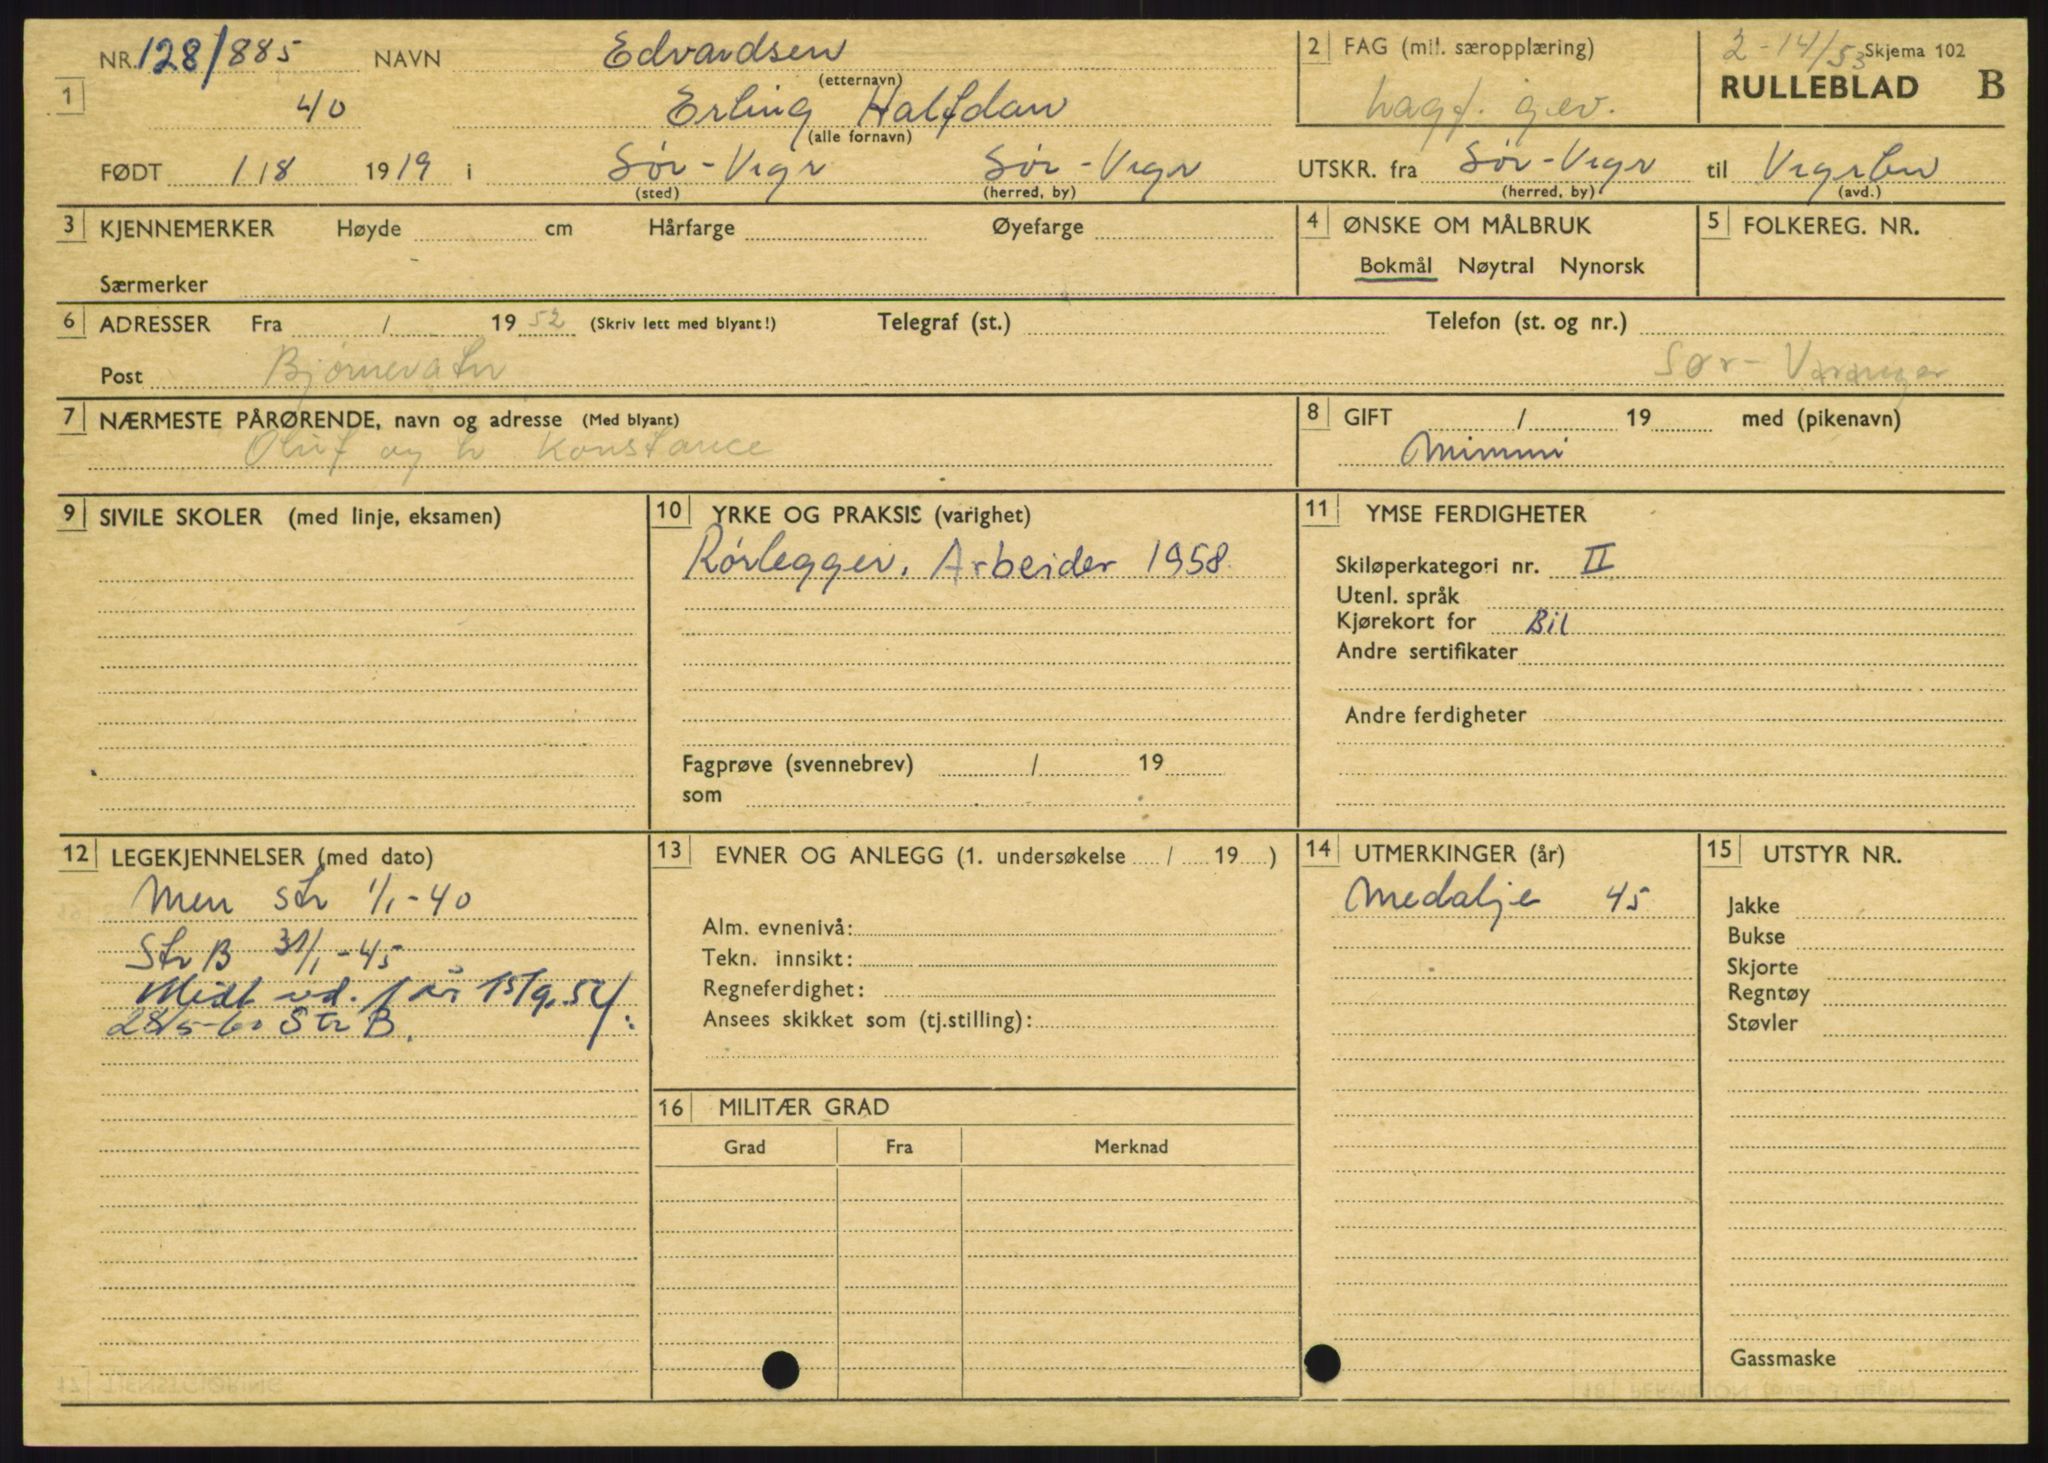 NR. 128/885 NAVN Edvardsen 2 FAG (mil. særopplæring) 2-14/53 Skjema 102
(etternavn) RULLEBLAD B
1 40 Erling Halfdan Lagf. gev.
(alle fornavn)
FØDT 1/8 1919 i Sør-Vrgr Sør-Vrgr UTSKR. fra Sør-Vrgr til Vrgrbn
(sted) (herred, by) (herred, by) (avd.)
3 KJENNEMERKER Høyde cm Hårfarge Øyefarge 4 ØNSKE OM MÅLBRUK 5 FOLKEREG. NR.
Bokmål Nøytral Nynorsk
Særmerker
6 ADRESSER Fra / 1952 (Skriv lett med blyant!) Telegraf (st.) Telefon (st. og nr.)
Post Bjørnevatn Sør-Varanger
7 NÆRMESTE PÅRØRENDE, navn og adresse (Med blyant) 8 GIFT / 19 med (pikenavn)
Oluf og h Konstance Mimmi
9 SIVILE SKOLER (med linje, eksamen) 10 YRKE OG PRAKSIS (varighet) 11 YMSE FERDIGHETER
Rørlegger. Arbeider 1958 Skiløperkategori nr. II
Utenl. språk
Kjørekort for Bil
Andre sertifikater
Andre ferdigheter
Fagprøve (svennebrev) / 19
som
12 LEGEKJENNELSER (med dato) 13 EVNER OG ANLEGG (1. undersøkelse / 19 ) 14 UTMERKINGER (år) 15 UTSTYR NR.
Men str 1/1-40 Medalje 45 Jakke
Alm. evnenivå: Bukse
Str B 31/1-45 Tekn. innsikt: Skjorte
Midt ud. 1 år 15/9.54 Regneferdighet: Regntøy
28/5-60 Str B. Ansees skikket som (tj.stilling): Støvler
16 MILITÆR GRAD
Grad Fra Merknad
Gassmaske